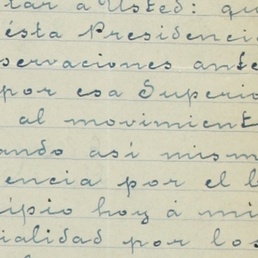 tar a Usted: qu
ésta Presidencia
servaciones ante
por esa Superio
al movimient
ando así mism
encia por el l
ipio hoy á mi
ialidad por los